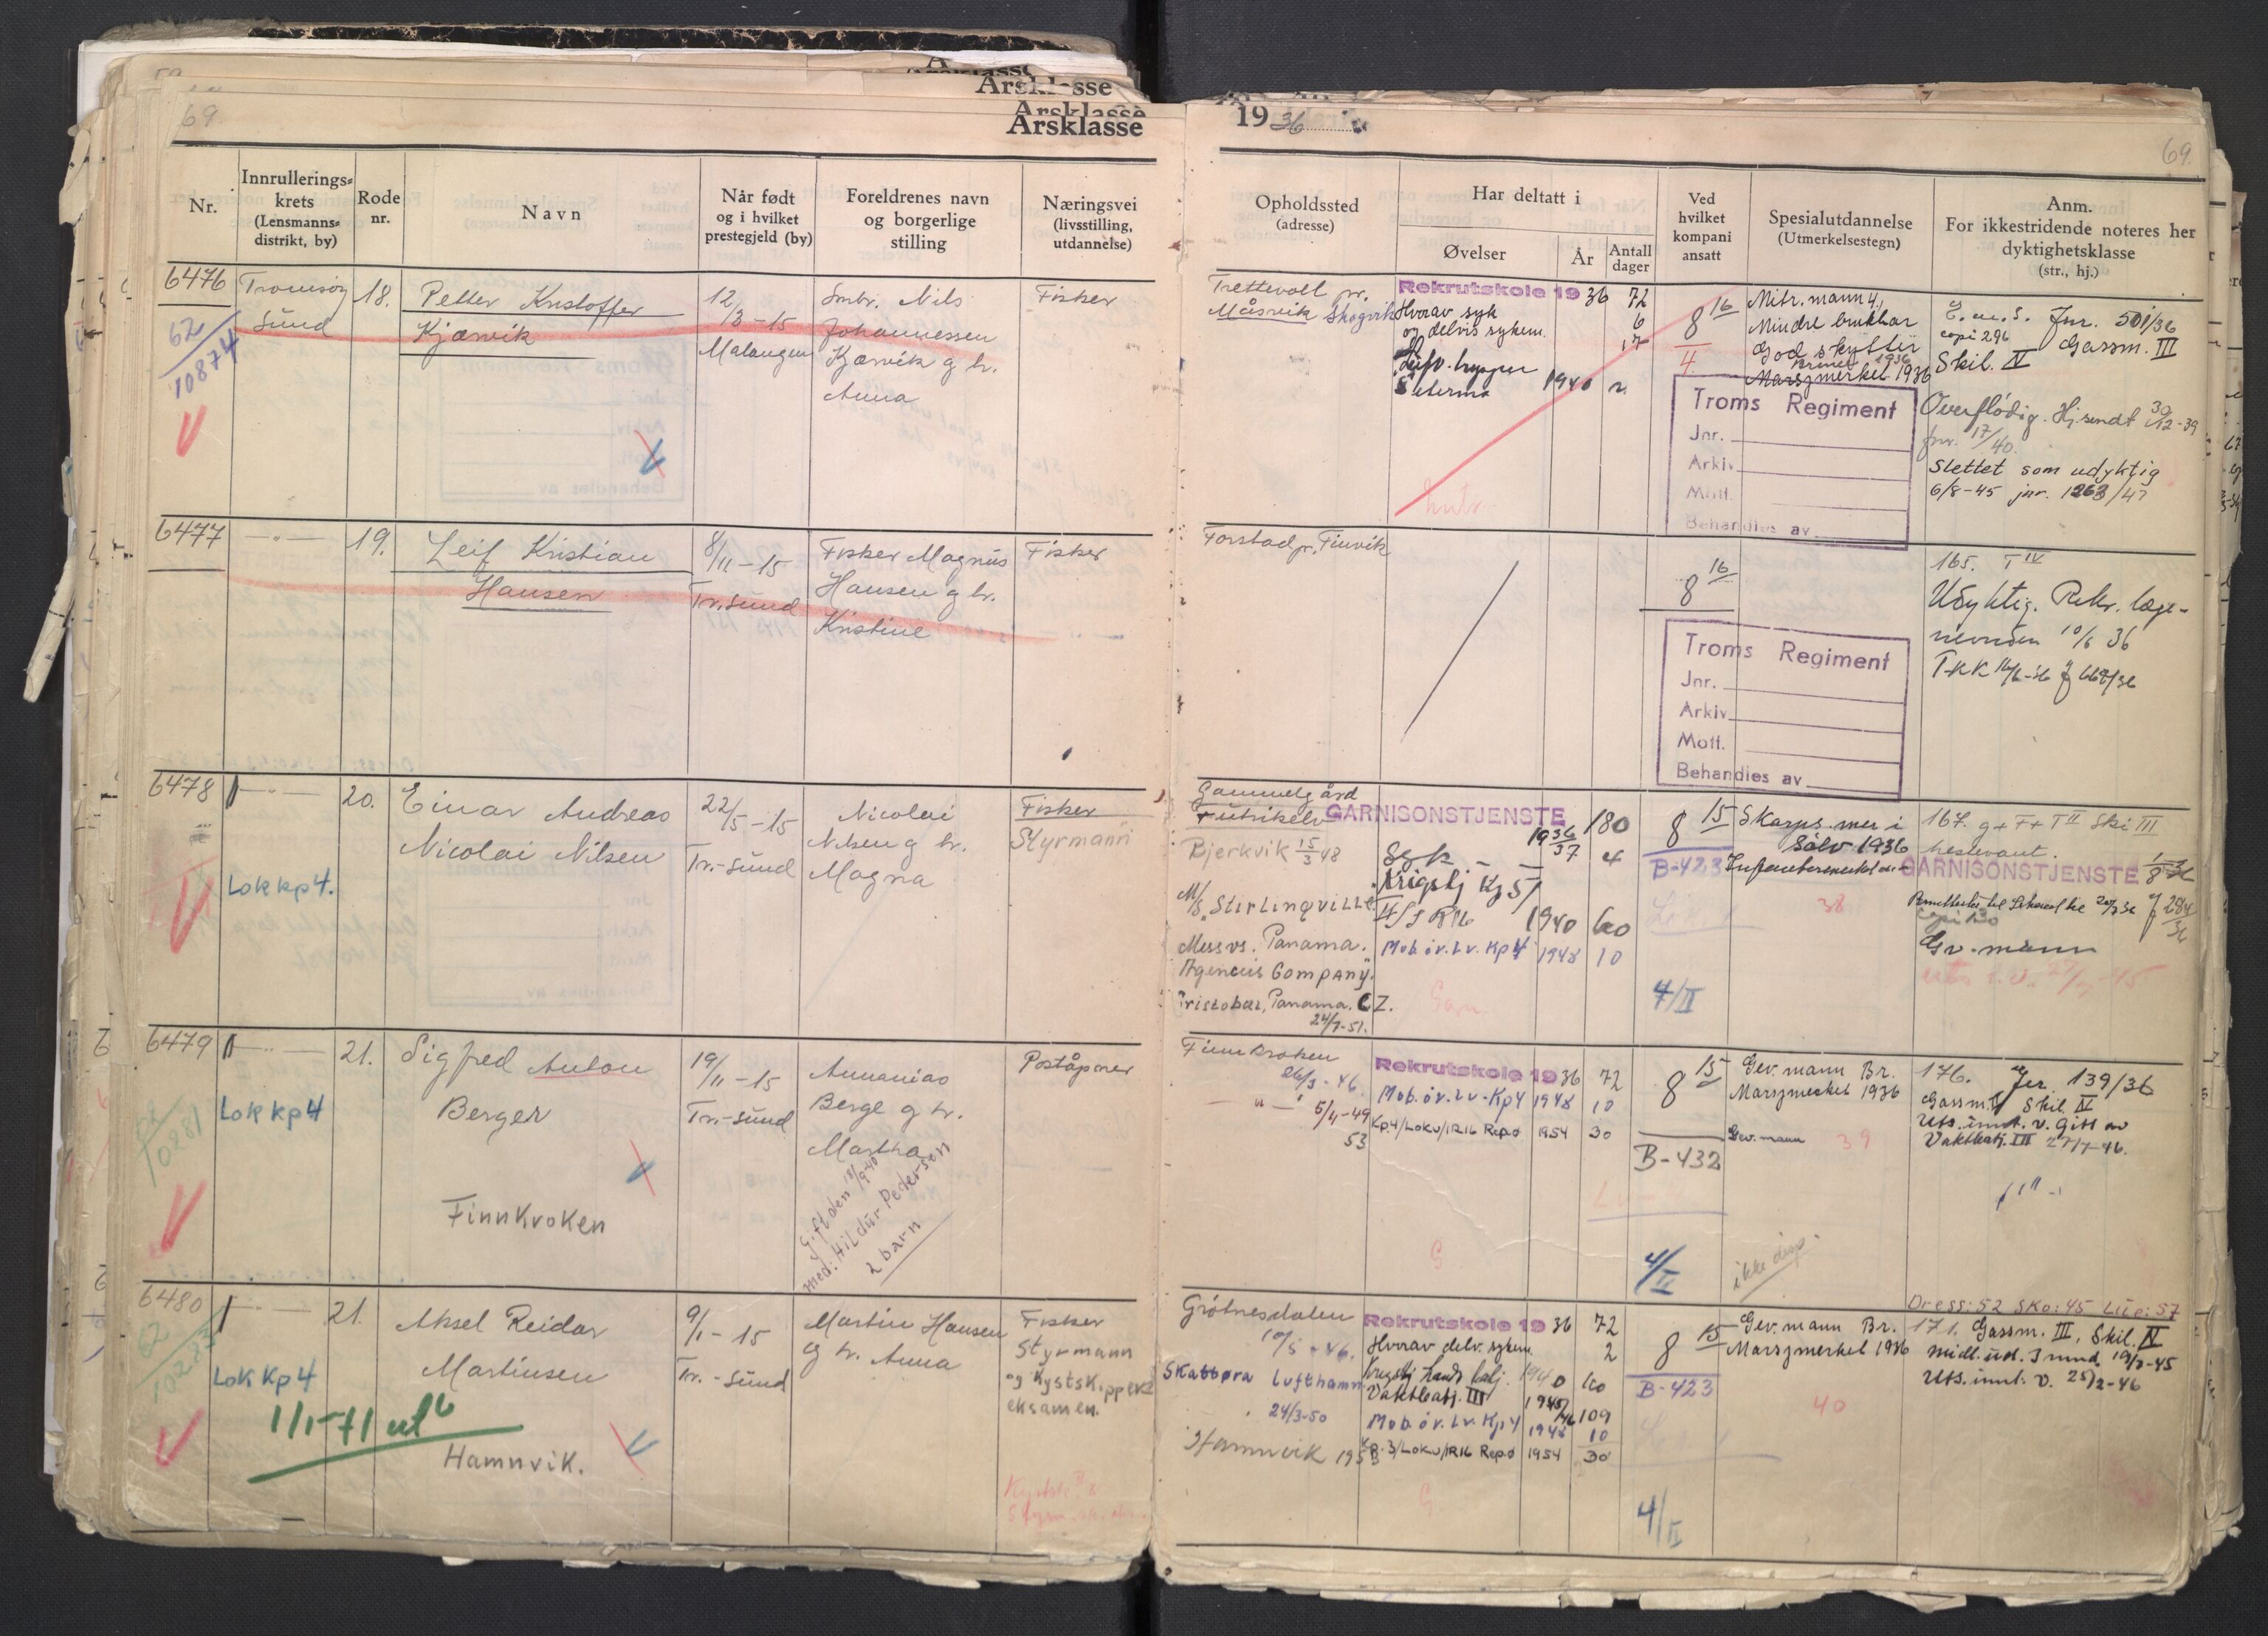 69
Årsklasse
1936
69.
Nr.
Innrullerings=
krets
(Lensmanns=
distrikt, by)
Rode
nr.
Navn
Når født
og i hvilket
prestegjeld (by)
Foreldrenes navn
og borgerlige
stilling
Næringsvei
(livsstilling,
utdannelse)
Opholdssted
(adresse)
Har deltatt i
Øvelser
År
Antall
dager
Ved
hvilket
kompani
ansatt
Spesialutdannelse
(Utmerkelsestegn)
Anm.
For ikkestridende noteres her
dyktighetsklasse
(str., hj.)
6476
62
10874
Tromsøy
sund
18.
Petter Kristoffer
Kjærvik
12/3-15
Malangen
Smbr. Nils
Johannessen
Kjærvik g h.
Anna
Fisker
Trettevoll pr.
Måsvik Skogvik
Rekrutskole 1936 72
Hvorav syk 6
og delvis sykem. 17
Sætermo 1940
8 16
4
Mitr. mann 4.
Mindre brukbar
God skytter
1936
Marszmerket 1936
Troms Regiment
Jnr.
Arkiv
Mott.
Behandles av
E.m.s. Jnr. 501/36
copi 296 Gassm. III
Skil. IV
Overflødig. Hj.sendt 30/12-39
jnr. 17/40.
Slettet som udyktig
6/8-45 jnr. 1263/47
6477
— " —
19.
Leif Kristian
Hansen
8/11-15
Tr.sund
Fisker Magnus
Hansen g h.
Kristine
Fisker
Forstad pr. Finvik
8 16
Troms Regiment
Jnr.
Arkiv
Mott.
Behandles av
165. T IV
Udyktig. Rekr. læge-
nevnden 10/6 36
TKK 16/6-36 J 668/36
6478
— " —
Lok kp 4.
20.
Einar Andreas
Nicolai Nilsen
22/5-15
Tr.-sund
Nicolai
Nilsen g h.
Magna
Fisker
Styrmann
Gammelgård
Futrikelv
Bjerkvik 15/3 48
M/S "Stirlingville"
Messrs. Panama
Agencies Company
Cristobal, Panama. C Z.
24/7-51.
GARNISONSTJENSTE 1936/37 180
Syk — — 4
Krigstj Kp 5/
II/IR16 1940 60
Mob.øv.Lv.Kp 4 1948 10
8 15
B-423
4/II
Skarps.mer i
Sølv 1936
38
167. g + F + T II Ski III
GARNISONSTJENSTE
copi 130
Gv. mann
6479
— " —
Lok kp 4
21.
Sigfred Anton
Berger
Finnkroken
10281
19/11-15
Tr.-sund
Annanias
Berge g h.
Martha
Gift den 18/9-40
med: Hildur Pedersen
2 barn
Poståpner
Finnkroken
26/3-46.
— " — 5/4-49
53
Rekrutskole 1936 72
Mob.øv.Lv-Kp 4 1948 10
Kp.4/Lokv/IR16 Rep.ø 1954 30
8 15
B-432
4/II
Gev.mann Br.
Marszmerket 1936
Gev.mann 39
ikke disp.
176. Jnr. 139/36
Gassm. II Skil. IV
Uts. innt. v. Gitt av
Vaktbatj. III 27/7-46.
6480
62
10283
— " —
Lok Kp 4
1/1-71 utg
21.
Aksel Reidar
Martinsen
Hamnvik.
9/1-15
Tr.-sund
Martin Hansen
og h. Anna
Fisker
Styrmann
og Kystskipper
eksamen.
Grøtnesdalen
10/5-46.
Skattøra Lufthamn
24/3-50
Hamnvik 1953
Rekrutskole 1936 72
Hvorav delv. sykem. 2
Krigstj. Lands batj. 1940 60
Vaktbatj. III 1945/46 109
Mob.øv.Lv.Kp 4 1948 10
Kp.3/Lokv/IR16 Rep.ø 1954 30
8 15
B-423
4/II
Gev.mann Br.
Marszmerket 1936
40
Dress: 52 Sko: 45 Lue: 57
171. Gassm. III, Skil. IV
Midl. ud. 3 mnd 19/7-45
Uts. innt. v. 25/2-46